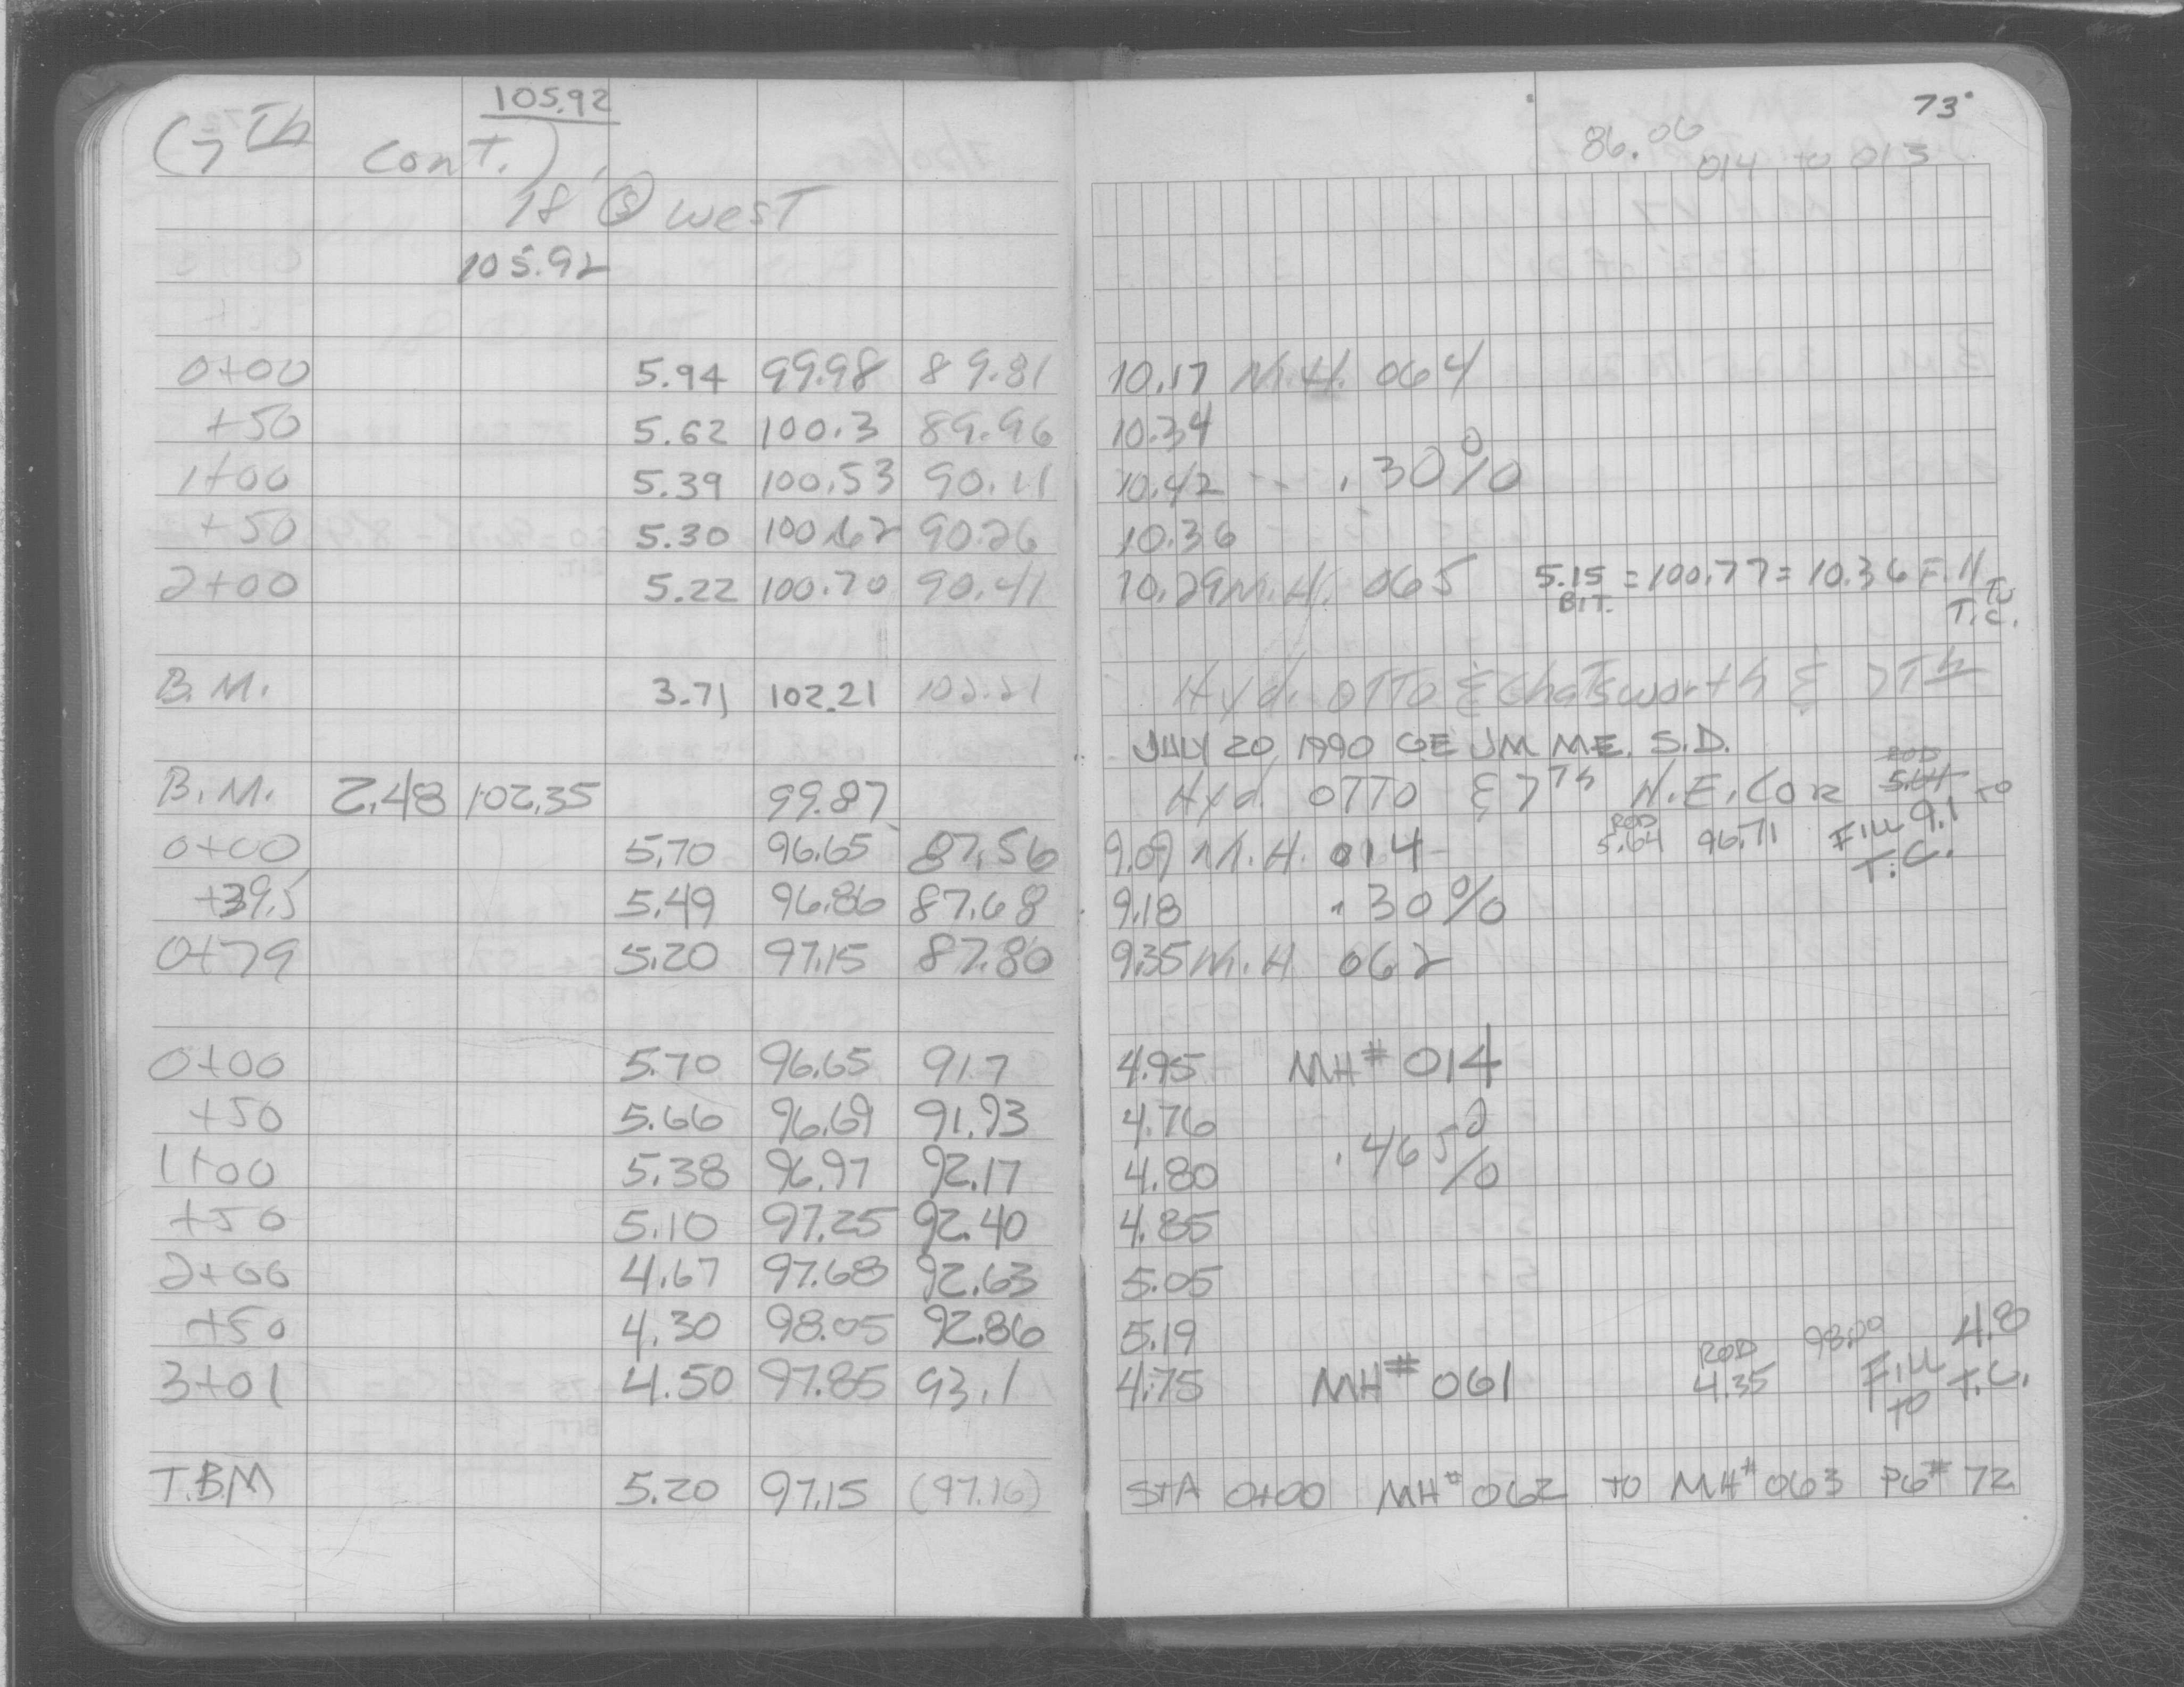 105.92
(7th cont.)
18' @ west
105.92
73
86.06
014 to 013
0+00 5.94 99.98 89.81 10.17 M.H. 064
+50 5.62 100.3 89.96 10.34
1+00 5.39 100.53 90.11 10.42 .30%
+50 5.30 100.62 90.26 10.36
2+00 5.22 100.70 90.41 10.29 M.H. 065 5.15 = 100.77 = 10.36 Fill to T.C.
BIT.
B.M. 3.71 102.21 102.21 Hyd. OTTO & Chatsworth & 7Th
JULY 20 1990 GE JM ME. S.D.
B.M. 2.48 102.35 99.87 Hyd. OTTO & 7Th N.E. Cor ROD 5.64
0+00 5.70 96.65 87.56 9.09 M.H. 014 ROD 5.64 96.71 FILL 9.1 TO T.C.
+39.5 5.49 96.86 87.68 9.18 .30%
0+79 5.20 97.15 87.80 9.35 M.H 062
0+00 5.70 96.65 91.7 4.95 MH# 014
+50 5.66 96.69 91.93 4.76
1+00 5.38 96.97 92.17 4.80 .465%
+50 5.10 97.25 92.40 4.85
2+00 4.67 97.68 92.63 5.05
+50 4.30 98.05 92.86 5.19
3+01 4.50 97.85 93.1 4.75 MH# 061 ROD 4.35 98.00 FILL 4.8 TO T.C.
T.B.M 5.20 97.15 (97.16) STA 0+00 MH# 062 TO MH# 063 PG# 72